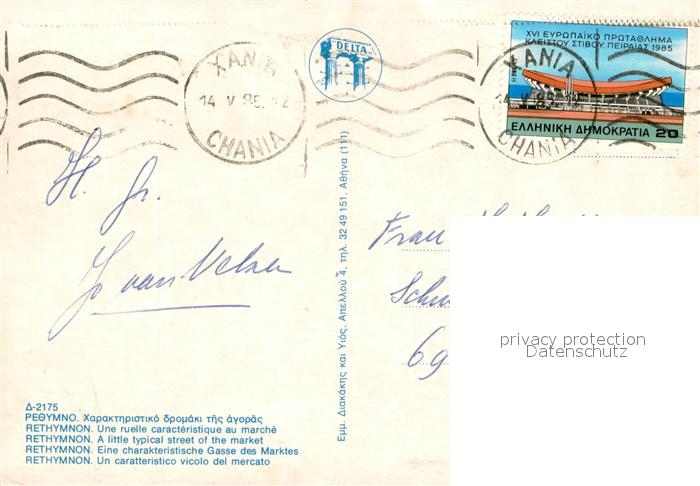 ΧΑΝΙΑ
14 V 85. 12
CHANIA
DELTA
XVI ΕΥΡΩΠΑΪΚΟ ΠΡΩΤΑΘΛΗΜΑ
ΚΛΕΙΣΤΟΥ ΣΤΙΒΟΥ, ΠΕΙΡΑΙΑΣ 1985
ΕΛΛΗΝΙΚΗ ΔΗΜΟΚΡΑΤΙΑ 20
ΧΑΝΙΑ
CHANIA
H. Gr.
J van Velzen
Εμμ. Διακάκης και Υιός, Απελλού 4, τηλ. 32 49 151, Αθήνα (111)
Frau
69
privacy protection
Datenschutz
Δ-2175
ΡΕΘΥΜΝΟ. Χαρακτηριστικό δρομάκι τῆς ἀγορᾶς
RETHYMNON. Une ruelle caractéristique au marché
RETHYMNON. A little typical street of the market
RETHYMNON. Eine charakteristische Gasse des Marktes
RETHYMNON. Un caratteristico vicolo del mercato